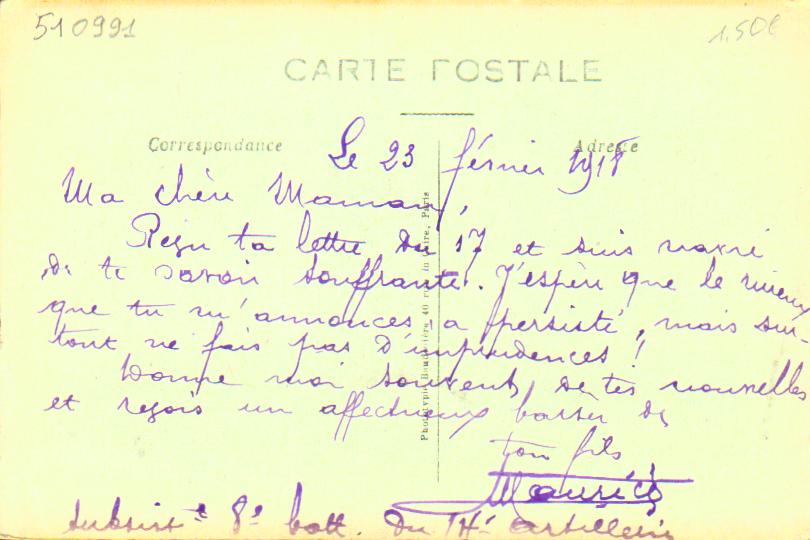 510991
1.50€
CARTE POSTALE
Correspondance
Adresse
Le 23 février 1918
Ma chère Maman,
Reçu ta lettre du 17 et suis navré
de te savoir souffrante. J'espère que le mieux
que tu m'annonces a persisté, mais sur-
tout ne fais pas d'imprudences !
Donne moi souvent de tes nouvelles
et reçois un affectueux baiser de
ton fils
Maurice
8e batt. du artillerie
Phototypie Baudinière, 40 rue du Caire, Paris